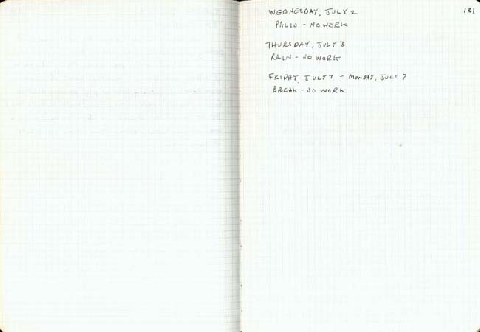 181
WEDNESDAY, JULY 2
RAIN - NO WORK
THURSDAY, JULY 3
RAIN - NO WORK
FRIDAY, JULY - MONDAY, JULY 7
BREAK - NO WORK